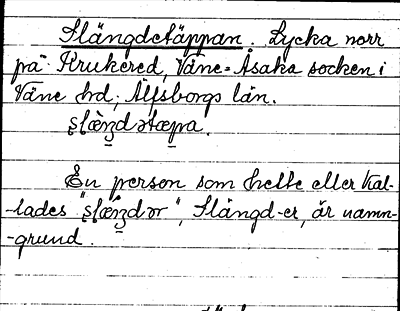 Slängdetäppan. Lycka norr
på Krukered, Väne-Åsaka socken i
Väne hd, Älfsborgs län.
En person som hette eller kal-
-lades " ", Slängd-er, är namn-
-grund.